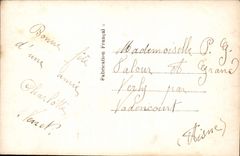 Bonne fête
d'une amie
Charlotte
Fabrication Française
Mademoiselle P. G.
Valour St Grand
Verly par
Vadencourt
(Aisne)